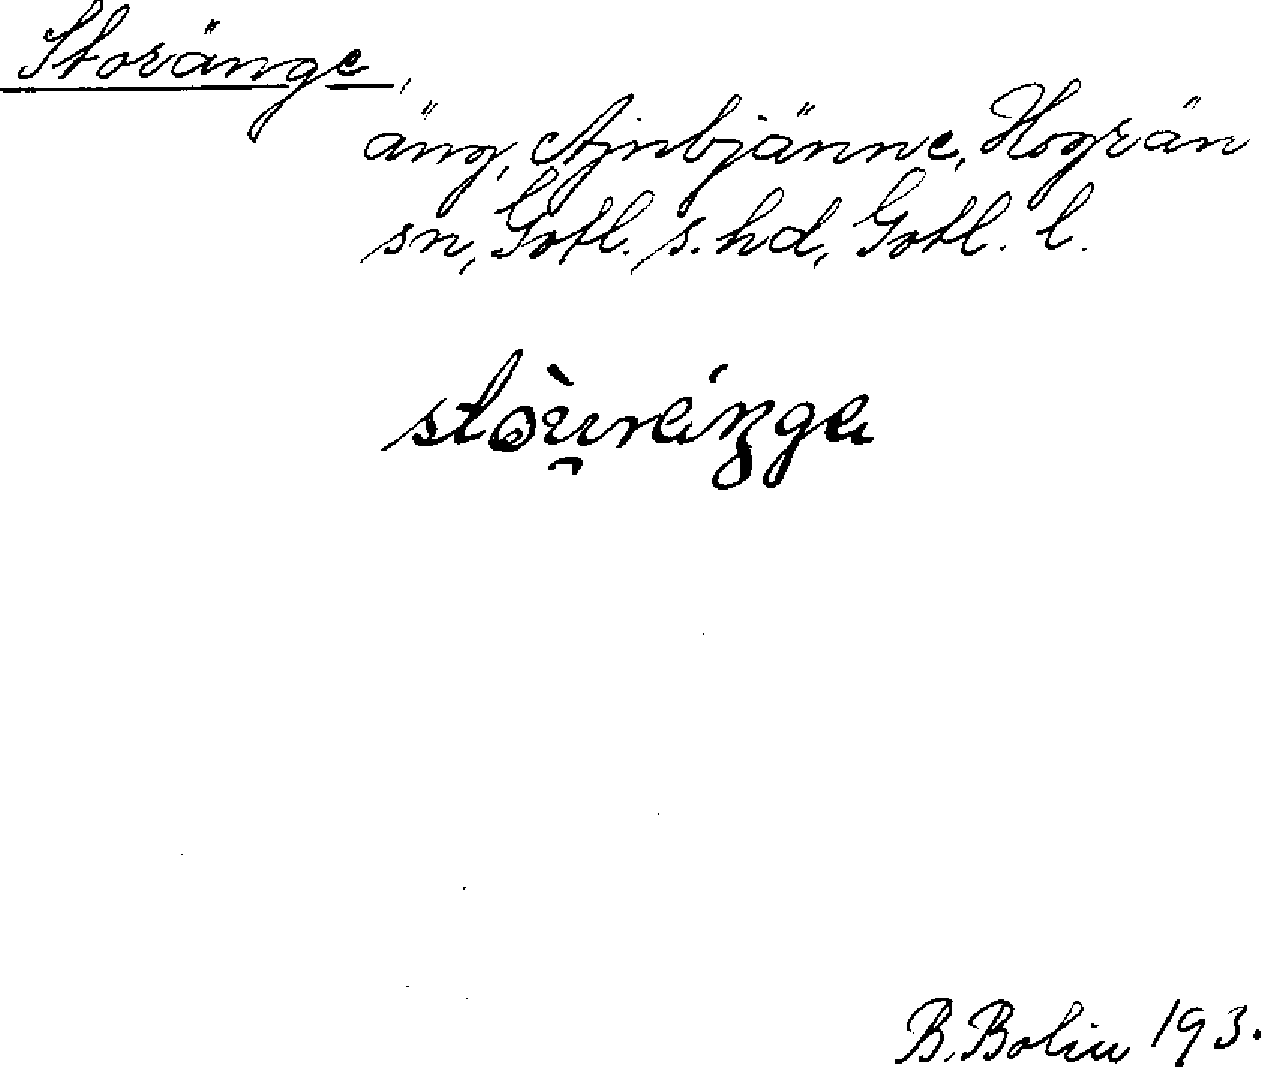 Storänge,
äng, Ajnbjänne, Hogrän
sn, Gotl. s. hd, Gotl. l.
B. Bolin 193.